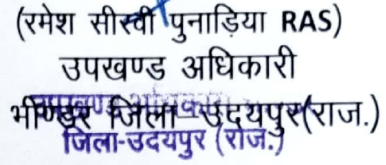 (रमेश सीरवी पुनाड़िया RAS)
उपखण्ड अधिकारी
भीण्डर जिला-उदयपुर(राज.)
उपखण्ड अधिकारी
जिला-उदयपुर (राज.)